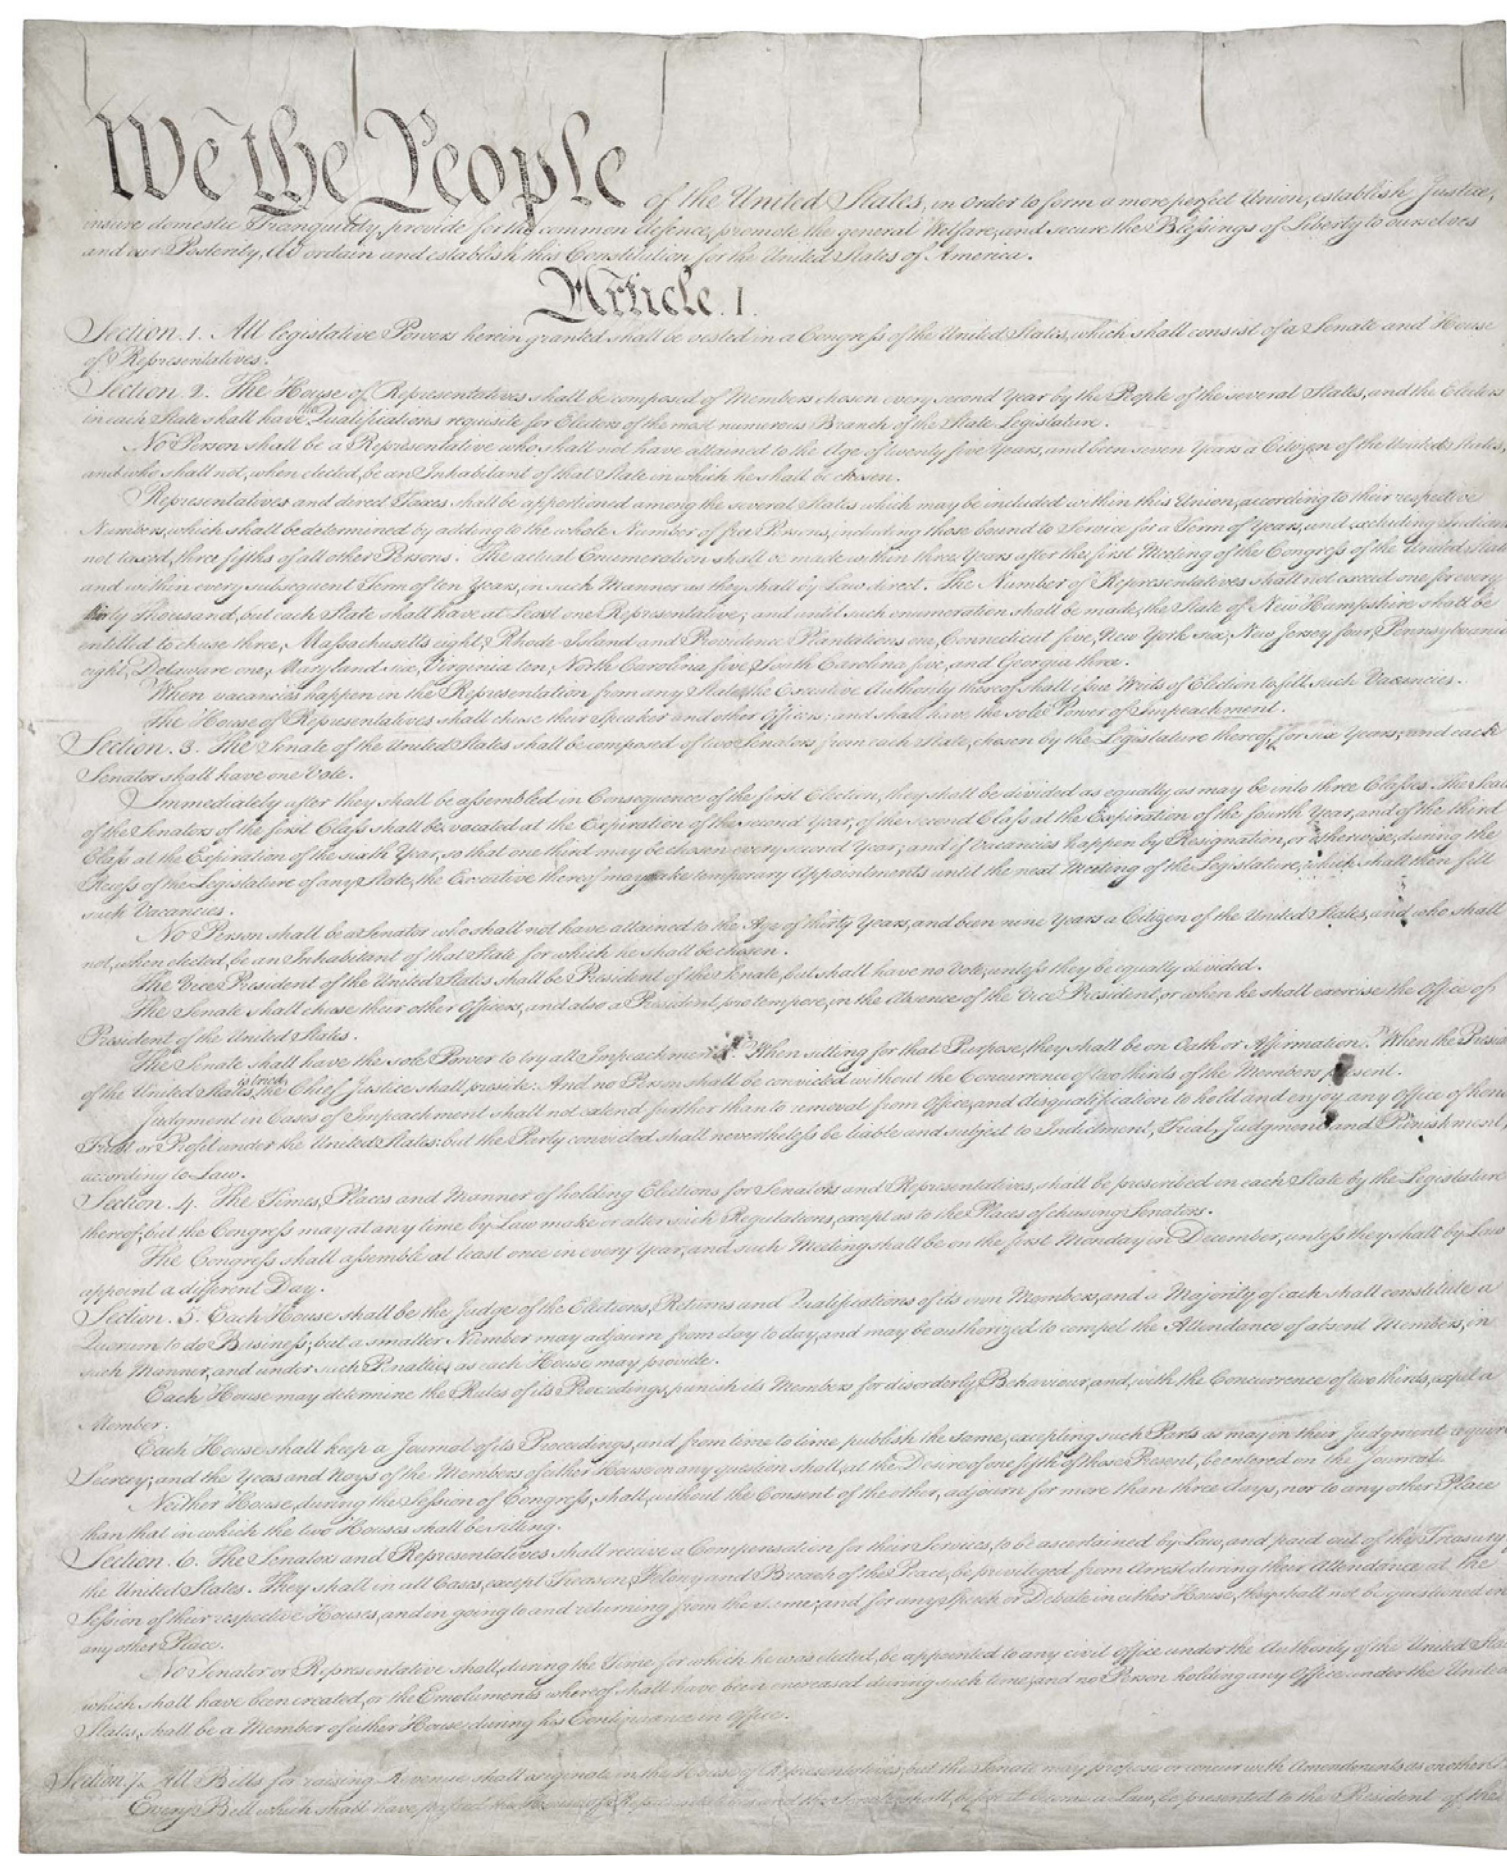 We the People of the United States, in Order to form a more perfect Union, establish Justice,
insure domestic Tranquility, provide for the common defence, promote the general Welfare, and secure the Blessings of Liberty to ourselves
and our Posterity, do ordain and establish this Constitution for the United States of America.
Article. I.
Section. 1. All legislative Powers herein granted shall be vested in a Congress of the United States, which shall consist of a Senate and House
of Representatives.
Section. 2. The House of Representatives shall be composed of Members chosen every second Year by the People of the several States, and the Electors
in each State shall have the Qualifications requisite for Electors of the most numerous Branch of the State Legislature.
No Person shall be a Representative who shall not have attained to the Age of twenty five Years, and been seven Years a Citizen of the United States,
and who shall not, when elected, be an Inhabitant of that State in which he shall be chosen.
Representatives and direct Taxes shall be apportioned among the several States which may be included within this Union, according to their respective
Numbers, which shall be determined by adding to the whole Number of free Persons, including those bound to Service for a Term of Years, and excluding Indians
not taxed, three fifths of all other Persons. The actual Enumeration shall be made within three Years after the first Meeting of the Congress of the United State
and within every subsequent Term of ten Years, in such Manner as they shall by Law direct. The Number of Representatives shall not exceed one for every
thirty Thousand, but each State shall have at Least one Representative; and until such enumeration shall be made, the State of New Hampshire shall be
entitled to chuse three, Massachusetts eight, Rhode-Island and Providence Plantations one, Connecticut five, New-York six, New Jersey four, Pennsylvania
eight, Delaware one, Maryland six, Virginia ten, North Carolina five, South Carolina five, and Georgia three.
When vacancies happen in the Representation from any State, the Executive Authority thereof shall issue Writs of Election to fill such Vacancies.
The House of Representatives shall chuse their Speaker and other Officers; and shall have the sole Power of Impeachment.
Section. 3. The Senate of the United States shall be composed of two Senators from each State, chosen by the Legislature thereof, for six Years; and each
Senator shall have one Vote.
Immediately after they shall be assembled in Consequence of the first Election, they shall be divided as equally as may be into three Classes. The Seats
of the Senators of the first Class shall be vacated at the Expiration of the second Year, of the second Class at the Expiration of the fourth Year, and of the third
Class at the Expiration of the sixth Year, so that one third may be chosen every second Year; and if Vacancies happen by Resignation, or otherwise, during the
Recess of the Legislature of any State, the Executive thereof may make temporary Appointments until the next Meeting of the Legislature, which shall then fill
such Vacancies.
No Person shall be a Senator who shall not have attained to the Age of thirty Years, and been nine Years a Citizen of the United States, and who shall
not, when elected, be an Inhabitant of that State for which he shall be chosen.
The Vice President of the United States shall be President of the Senate, but shall have no Vote, unless they be equally divided.
The Senate shall chuse their other Officers, and also a President pro tempore, in the Absence of the Vice President, or when he shall exercise the Office of
President of the United States.
The Senate shall have the sole Power to try all Impeachments. When sitting for that Purpose, they shall be on Oath or Affirmation. When the Presid
of the United States is tried, the Chief Justice shall preside: And no Person shall be convicted without the Concurrence of two thirds of the Members present.
Judgment in Cases of Impeachment shall not extend further than to removal from Office, and disqualification to hold and enjoy any Office of hono
Trust or Profit under the United States: but the Party convicted shall nevertheless be liable and subject to Indictment, Trial, Judgment and Punishment,
according to Law.
Section. 4. The Times, Places and Manner of holding Elections for Senators and Representatives, shall be prescribed in each State by the Legislature
thereof; but the Congress may at any time by Law make or alter such Regulations, except as to the Places of chusing Senators.
The Congress shall assemble at least once in every Year, and such Meeting shall be on the first Monday in December, unless they shall by Law
appoint a different Day.
Section. 5. Each House shall be the Judge of the Elections, Returns and Qualifications of its own Members, and a Majority of each shall constitute a
Quorum to do Business; but a smaller Number may adjourn from day to day, and may be authorized to compel the Attendance of absent Members, in
such Manner, and under such Penalties as each House may provide.
Each House may determine the Rules of its Proceedings, punish its Members for disorderly Behaviour, and, with the Concurrence of two thirds, expel a
Member.
Each House shall keep a Journal of its Proceedings, and from time to time publish the same, excepting such Parts as may in their Judgment require
Secrecy; and the Yeas and Nays of the Members of either House on any question shall, at the Desire of one fifth of those Present, be entered on the Journal.
Neither House, during the Session of Congress, shall, without the Consent of the other, adjourn for more than three days, nor to any other Place
than that in which the two Houses shall be sitting.
Section. 6. The Senators and Representatives shall receive a Compensation for their Services, to be ascertained by Law, and paid out of the Treasury
the United States. They shall in all Cases, except Treason, Felony and Breach of the Peace, be privileged from Arrest during their Attendance at the
Session of their respective Houses, and in going to and returning from the same; and for any Speech or Debate in either House, they shall not be questioned in
any other Place.
No Senator or Representative shall, during the Time for which he was elected, be appointed to any civil Office under the Authority of the United Sta
which shall have been created, or the Emoluments whereof shall have been encreased during such time; and no Person holding any Office under the United
States, shall be a Member of either House during his Continuance in Office.
Section. 7. All Bills for raising Revenue shall originate in the House of Representatives; but the Senate may propose or concur with Amendments as on other
Every Bill which shall have passed the House of Representatives and the Senate, shall, before it become a Law, be presented to the President of the